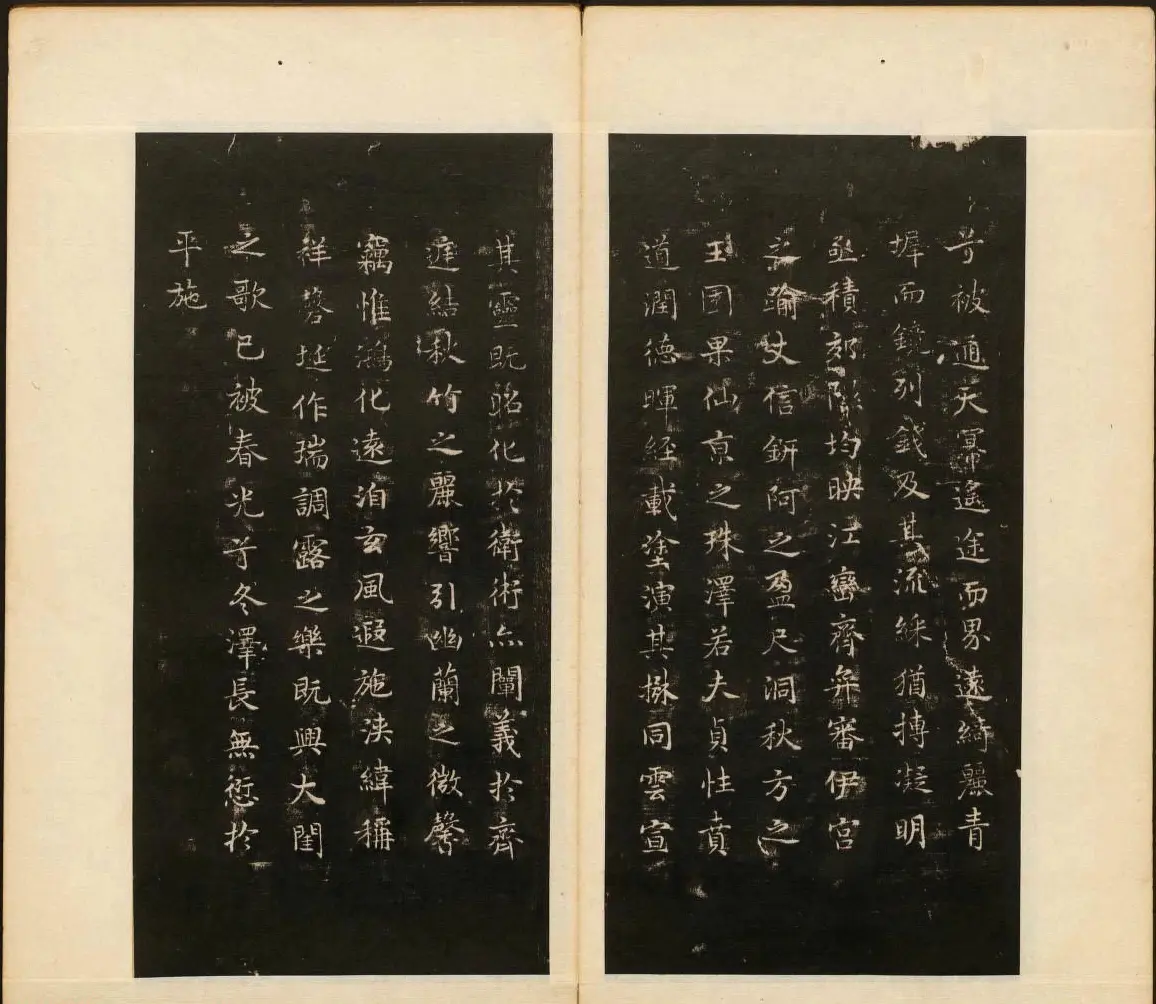 兮被通天冪遙途而界遠綺麗青
墀而鏡列錢及其流綵猶摶凝明
亟積郊際均映江巒齊弁審伊宮
之踰丈信鈃阿之盈尺洞秋方之
玉囿果仙京之珠澤若夫貞性賁
道潤德暉經載塗演其同雲宣
其靈既昭化於衛術亦闡義於齊
遲結秋竹之麗響引幽蘭之微馨
竊惟鴻化遠洎玄風遐施浹緯稱
祥磬埏作瑞調露之樂既興大閏
之歌已被春光兮冬澤長無愆於
平施